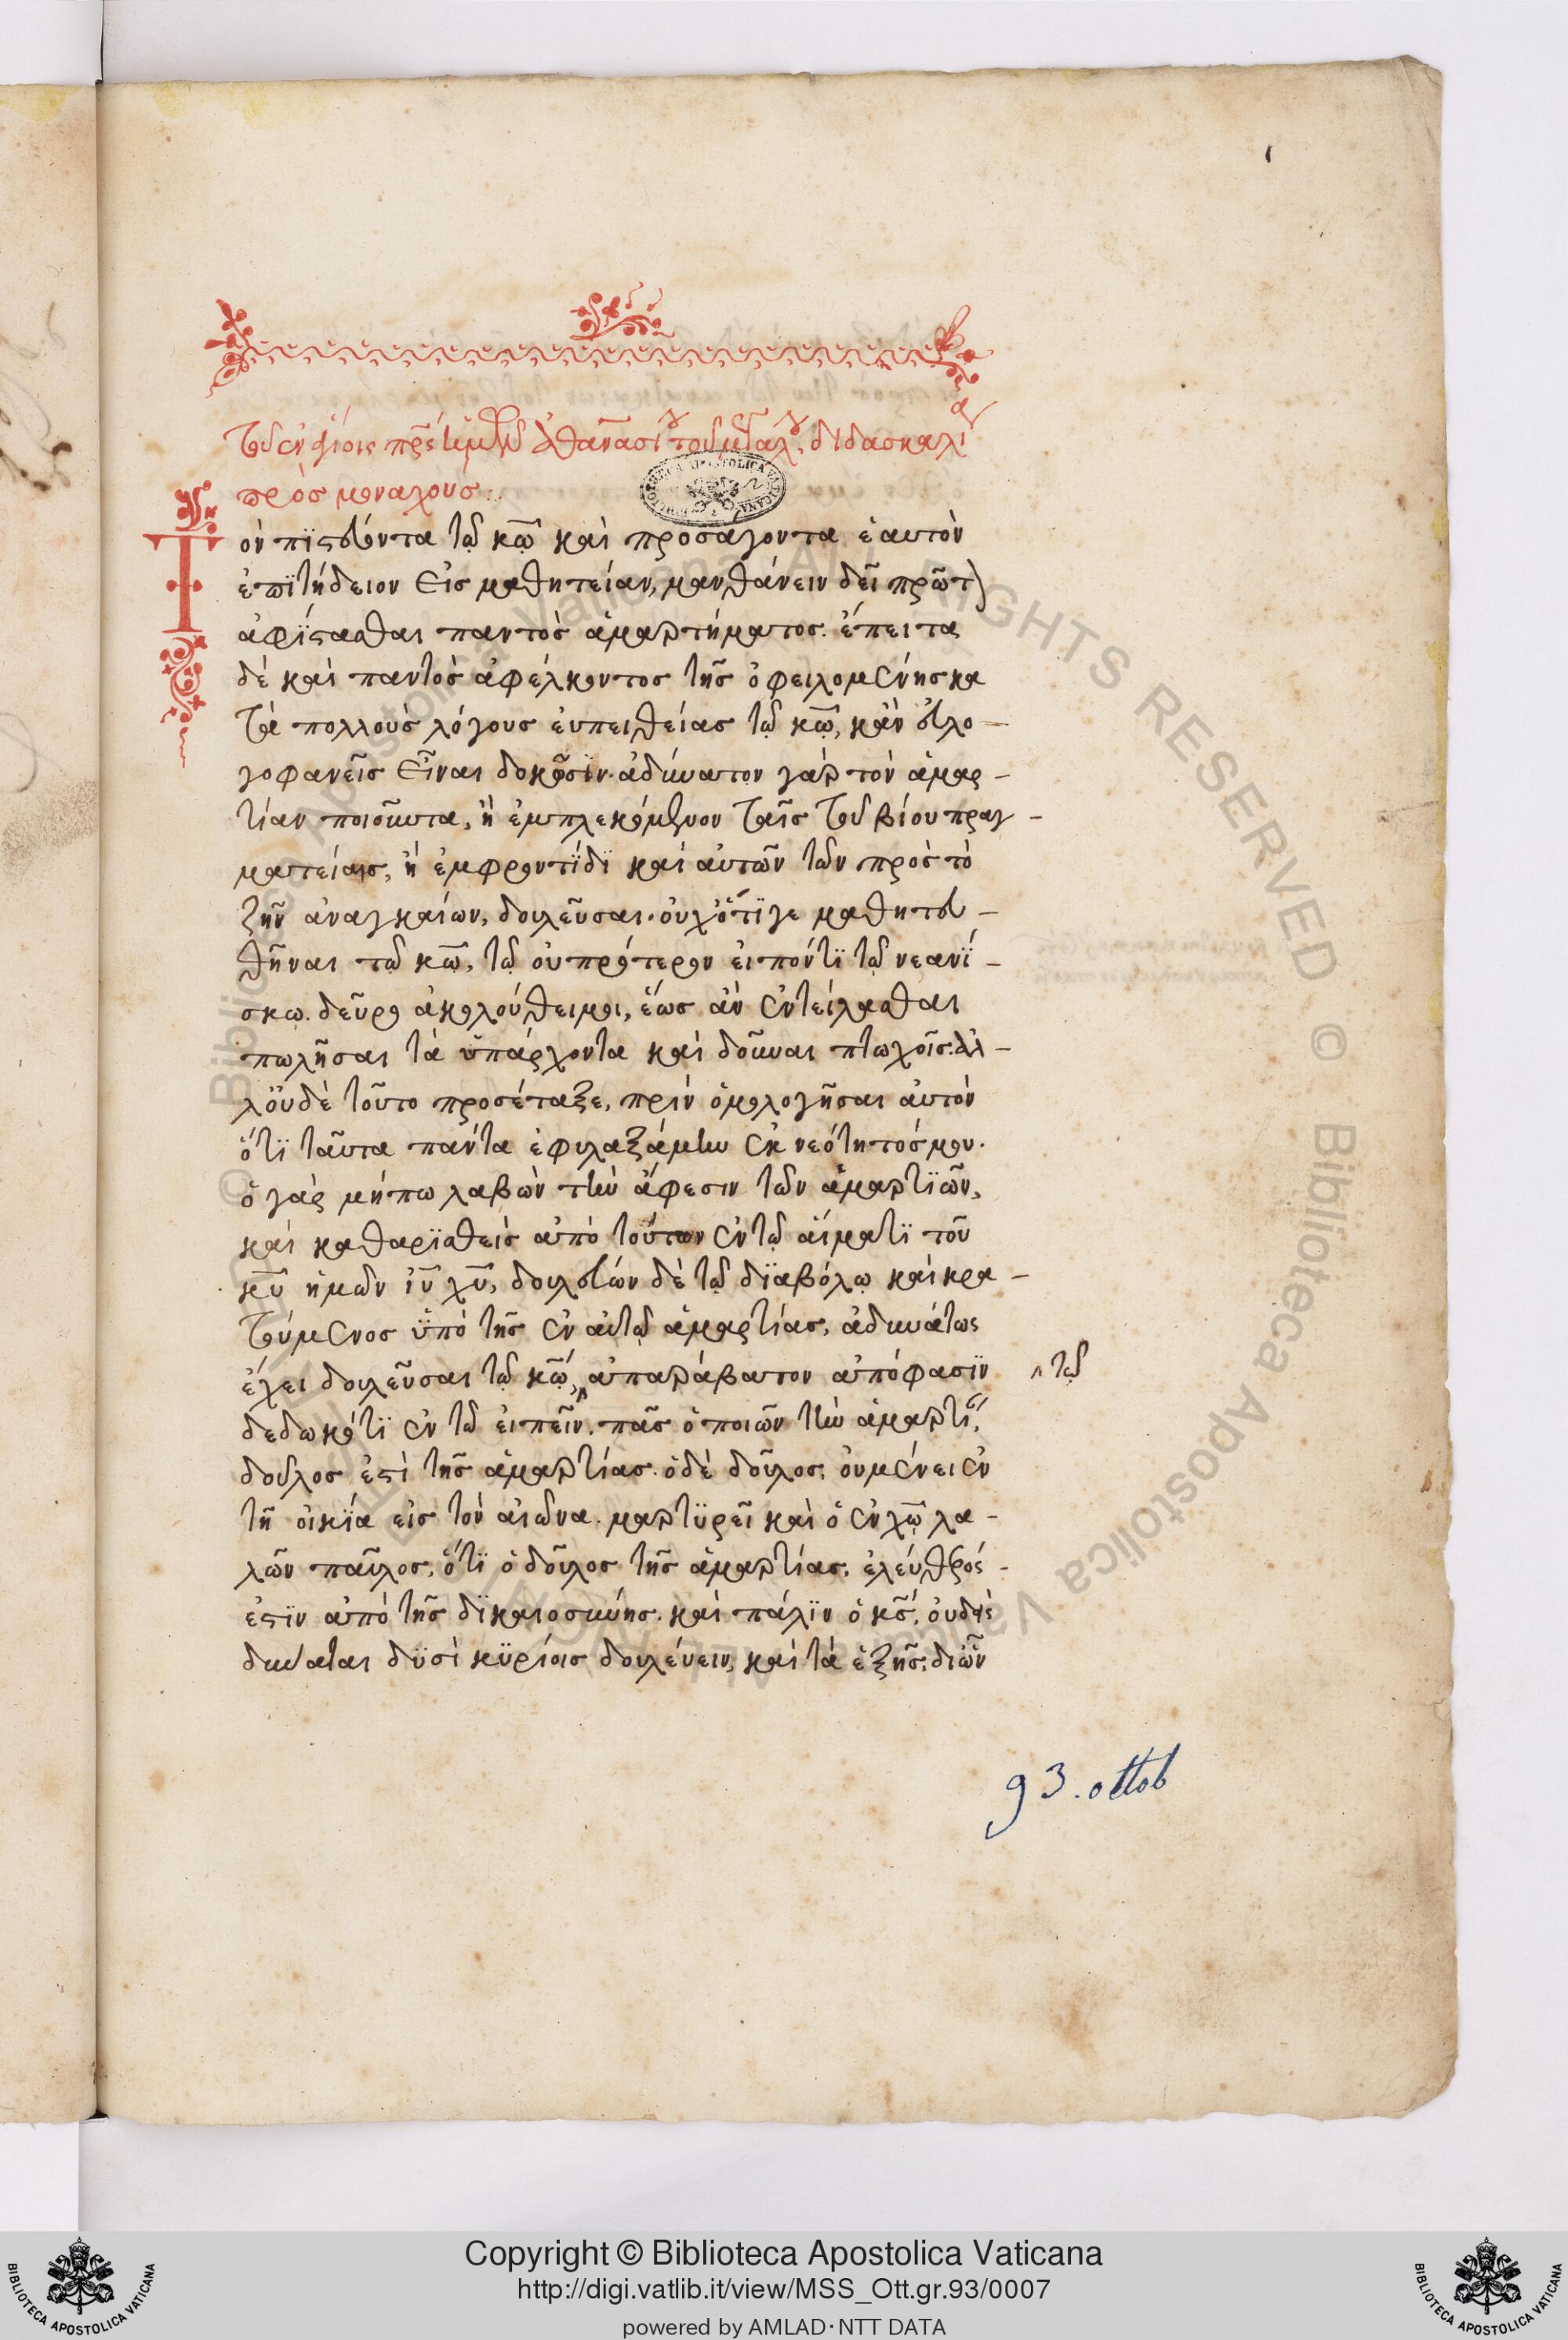 ι
τοῦ ἐν ἁγίοις πρς ἡμῶν ἀθανασίου τοῦ μεγάλου, διδασκαλία
πρὸς μοναχούς:
Τὸν πϊστεύοντα τῷ κω καὶ προσάγοντα ἑαυτὸν
ἐπϊτήδειον εἰς μαθητείαν, μανθάνειν δεῖ πρῶτ
ἀφΐστασθαι παντὸς ἁμαρτήματος. ἔπειτα
δὲ καὶ παντὸς ἀφέλκοντος τῆς ὀφειλομένης κα
τὰ πολλοὺς λόγους εὐπειθείας τῷ κω, κἂν εὐλο-
γοφανεῖς εἶναι δοκῶσϊν. ἀδύνατον γὰρ τὸν ἁμαρ-
τίαν ποιοῦντα, ἢ ἐμπλεκόμενον ταῖς τοῦ βίου πραγ-
ματείαις, ἢ ἐμφροντΐδϊ καὶ αὐτῶν τῶν πρὸς τὸ
ζῆν ἀναγκαίων, δουλεῦσαι. οὐχ ὅτϊγε μαθητευ-
θῆναι τῷ κω, τῷ οὐ πρότερον εἰπόντϊ τῷ νεανΐ-
σκω. δεῦρο ἀκολούθει μοι, ἕως ἂν ἐντείλασθαι
πωλῆσαι τὰ ὑπάρχοντα καὶ δοῦναι πτωχοῖς. ἀλ-
λ' οὐδὲ τοῦτο προσέταξε, πρὶν ὁμολογῆσαι αὐτὸν
ὅτϊ ταῦτα πάντα ἐφυλαξάμην ἐκ νεότητός μου.
ὁ γὰρ μήπω λαβὼν τὴν ἄφεσιν τῶν ἁμαρτϊῶν,
καὶ καθαρϊσθεὶς ἀπὸ τούτων ἐν τῷ αἵματϊ τοῦ
κυ ἡμῶν ιυ χυ, δουλεύων δὲ τῷ δϊαβόλῳ καὶ κρα-
τούμενος ὑπὸ τῆς ἐν αὐτῷ ἁμαρτίας, ἀδυνάτως
ἔχει δουλεῦσαι τῷ κω, ‸ ἀπαράβατον ἀπόφασϊν ‸ τῷ
δεδωκότϊ ἐν τῷ εἰπεῖν. πᾶς ὁ ποιῶν τὴν ἁμαρτί,
δοῦλος ἐστὶ τῆς ἁμαρτίας. ὁ δὲ δοῦλος, οὐ μένει ἐν
τῇ οἰκΐα εἰς τὸν αἰῶνα. μαρτϋρεῖ καὶ ὁ ἐν χω λα-
λῶν παῦλος, ὅτϊ ὁ δοῦλος τῆς ἁμαρτίας, ἐλεύθερός-
ἐστϊν ἀπὸ τῆς δϊκαιοσύνης. καὶ πάλϊν ὁ κς, οὐδεὶς
δύναται δϋσὶ κϋρίοις δουλεύειν, καὶ τὰ ἑξῆς. δι' ὧν
93. ottob
Copyright © Biblioteca Apostolica Vaticana
http://digi.vatlib.it/view/MSS_Ott.gr.93/0007
powered by AMLAD·NTT DATA